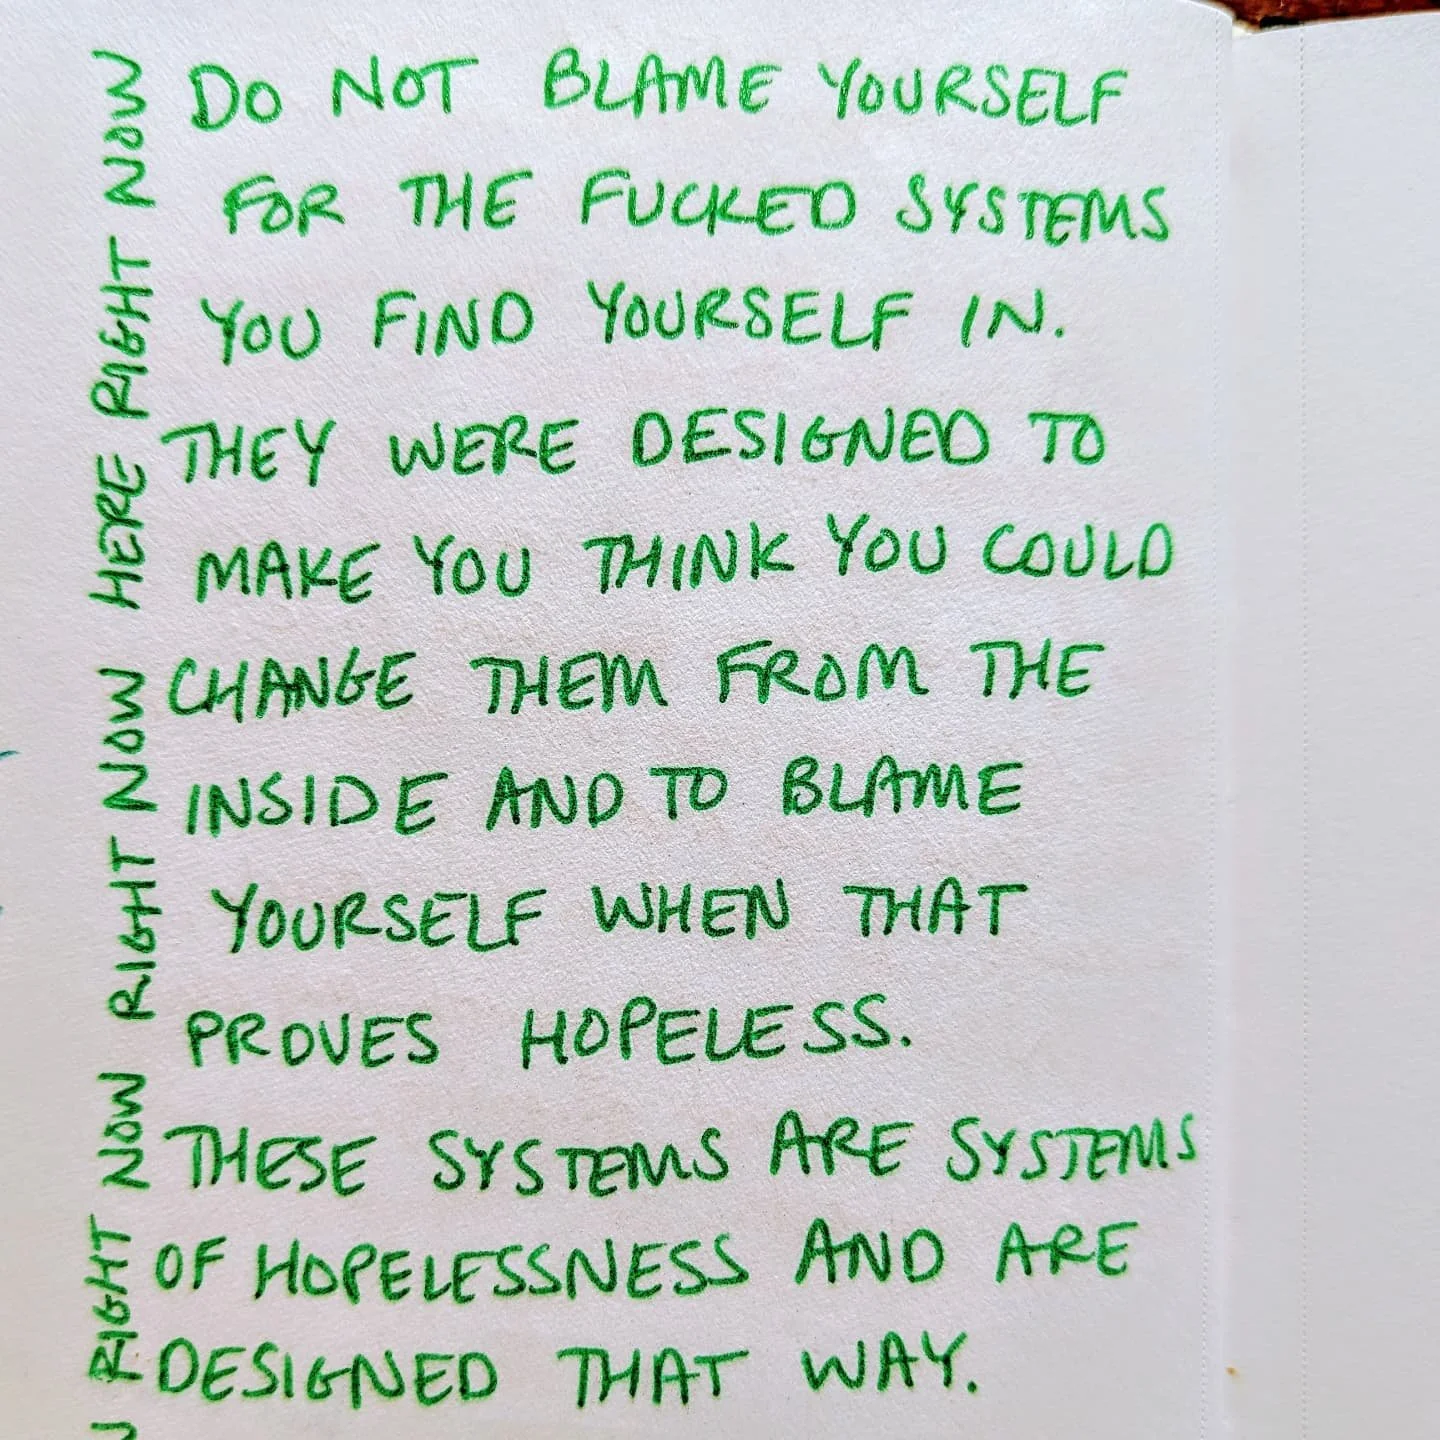 DO NOT BLAME YOURSELF
FOR THE FUCKED SYSTEMS
YOU FIND YOURSELF IN.
THEY WERE DESIGNED TO
MAKE YOU THINK YOU COULD
CHANGE THEM FROM THE
INSIDE AND TO BLAME
YOURSELF WHEN THAT
PROVES HOPELESS.
THESE SYSTEMS ARE SYSTEMS
OF HOPELESSNESS AND ARE
DESIGNED THAT WAY.
RIGHT NOW RIGHT NOW HERE RIGHT NOW